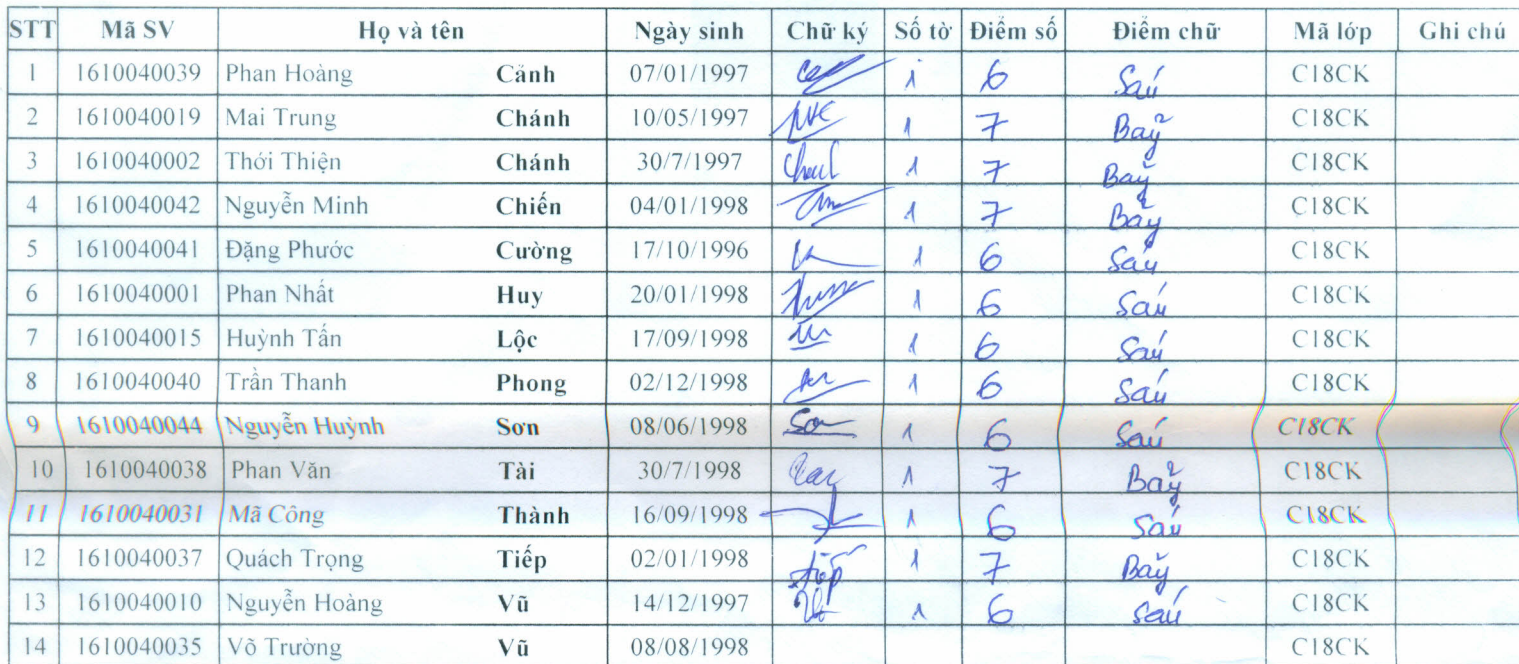 STT Mã SV Họ và tên Ngày sinh Chữ ký Số tờ Điểm số Điểm chữ Mã lớp Ghi chú
1 1610040039 Phan Hoàng Cảnh 07/01/1997 1 6 Sáu C18CK
2 1610040019 Mai Trung Chánh 10/05/1997 1 7 Bảy C18CK
3 1610040002 Thới Thiện Chánh 30/7/1997 1 7 Bảy C18CK
4 1610040042 Nguyễn Minh Chiến 04/01/1998 1 7 Bảy C18CK
5 1610040041 Đặng Phước Cường 17/10/1996 1 6 Sáu C18CK
6 1610040001 Phan Nhất Huy 20/01/1998 1 6 Sáu C18CK
7 1610040015 Huỳnh Tấn Lộc 17/09/1998 1 6 Sáu C18CK
8 1610040040 Trần Thanh Phong 02/12/1998 1 6 Sáu C18CK
9 1610040044 Nguyễn Huỳnh Sơn 08/06/1998 Sơn 1 6 Sáu C18CK
10 1610040038 Phan Văn Tài 30/7/1998 1 7 Bảy C18CK
11 1610040031 Mã Công Thành 16/09/1998 1 6 Sáu C18CK
12 1610040037 Quách Trọng Tiếp 02/01/1998 tiếp 1 7 Bảy C18CK
13 1610040010 Nguyễn Hoàng Vũ 14/12/1997 1 6 Sáu C18CK
14 1610040035 Võ Trường Vũ 08/08/1998 C18CK